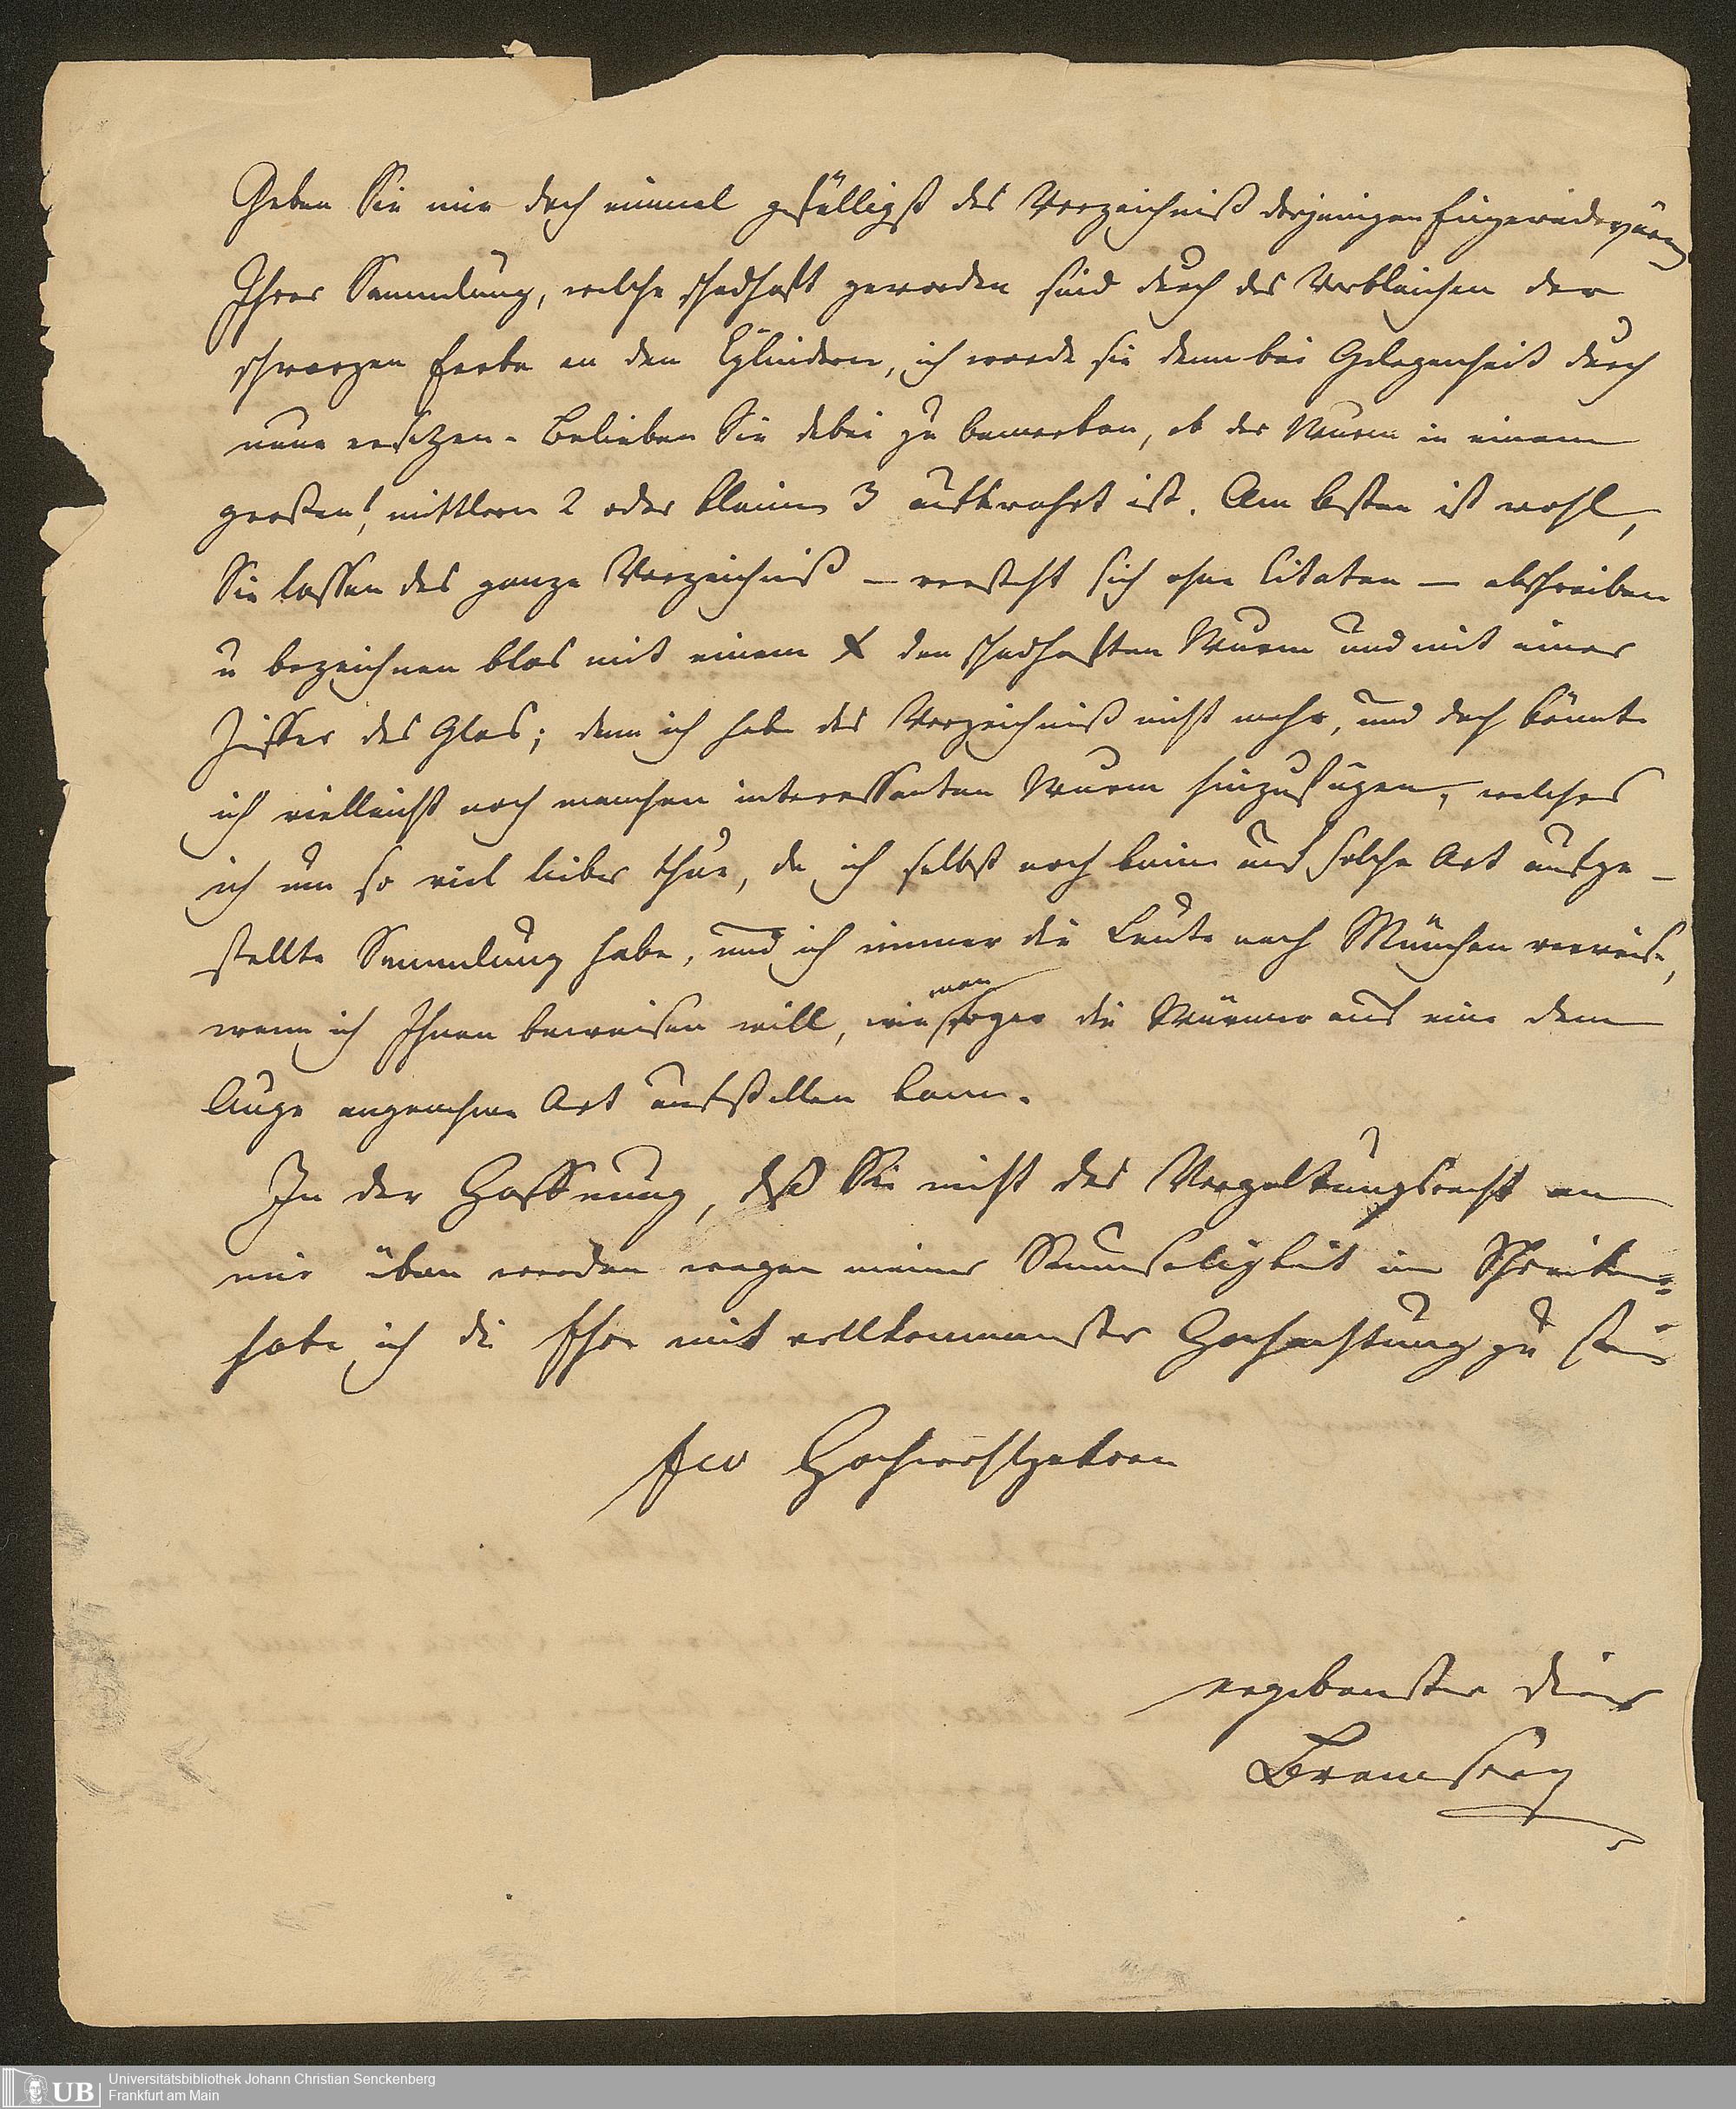 Geben Sie mir doch einmal gefälligst das Verzeichniß derjenigen Eingeweidewürmer
Ihrer Sammlung, welche schadhaft geworden sind durch das Verbleichen der
schwarzen Farbe an den Cylindern, ich werde sie dann bei Gelegenheit durch
neue ersetzen. Belieben Sie dabei zu bemerken, ob der Wurm in einem
großen 1, mittlern 2 oder kleinen 3 aufbewahrt ist. Am besten ist wohl,
Sie lassen das ganze Verzeichniß – versteht sich ohne Citaten – abschreiben
u bezeichnen blos mit einem X den schadhaften Wurm und mit einer
Ziffer das Glas; denn ich habe das Verzeichniß nicht mehr, und doch könnte
ich vielleicht noch manchen interessanten Wurm hinzufügen, welches
ich um so viel lieber thue, da ich selbst noch keine auf solche Art aufge-
stellte Sammlung habe, und ich immer die Leute nach München verweise,
wenn ich Ihnen beweisen will, wie man sogar die Würmer auf eine dem
Auge angenehme Art aufstellen kann.
In der Hoffnung, daß Sie nicht das Vergeltungsrecht an
mir üben werden wegen meiner Saumseligkeit im Schreiben
habe ich die Ehre mit vollkommenster Hochachtung zu sein
Ew Hochwohlgeboren
ergebenster Diener
Bremser
Universitätsbibliothek Johann Christian Senckenberg
Frankfurt am Main
UB